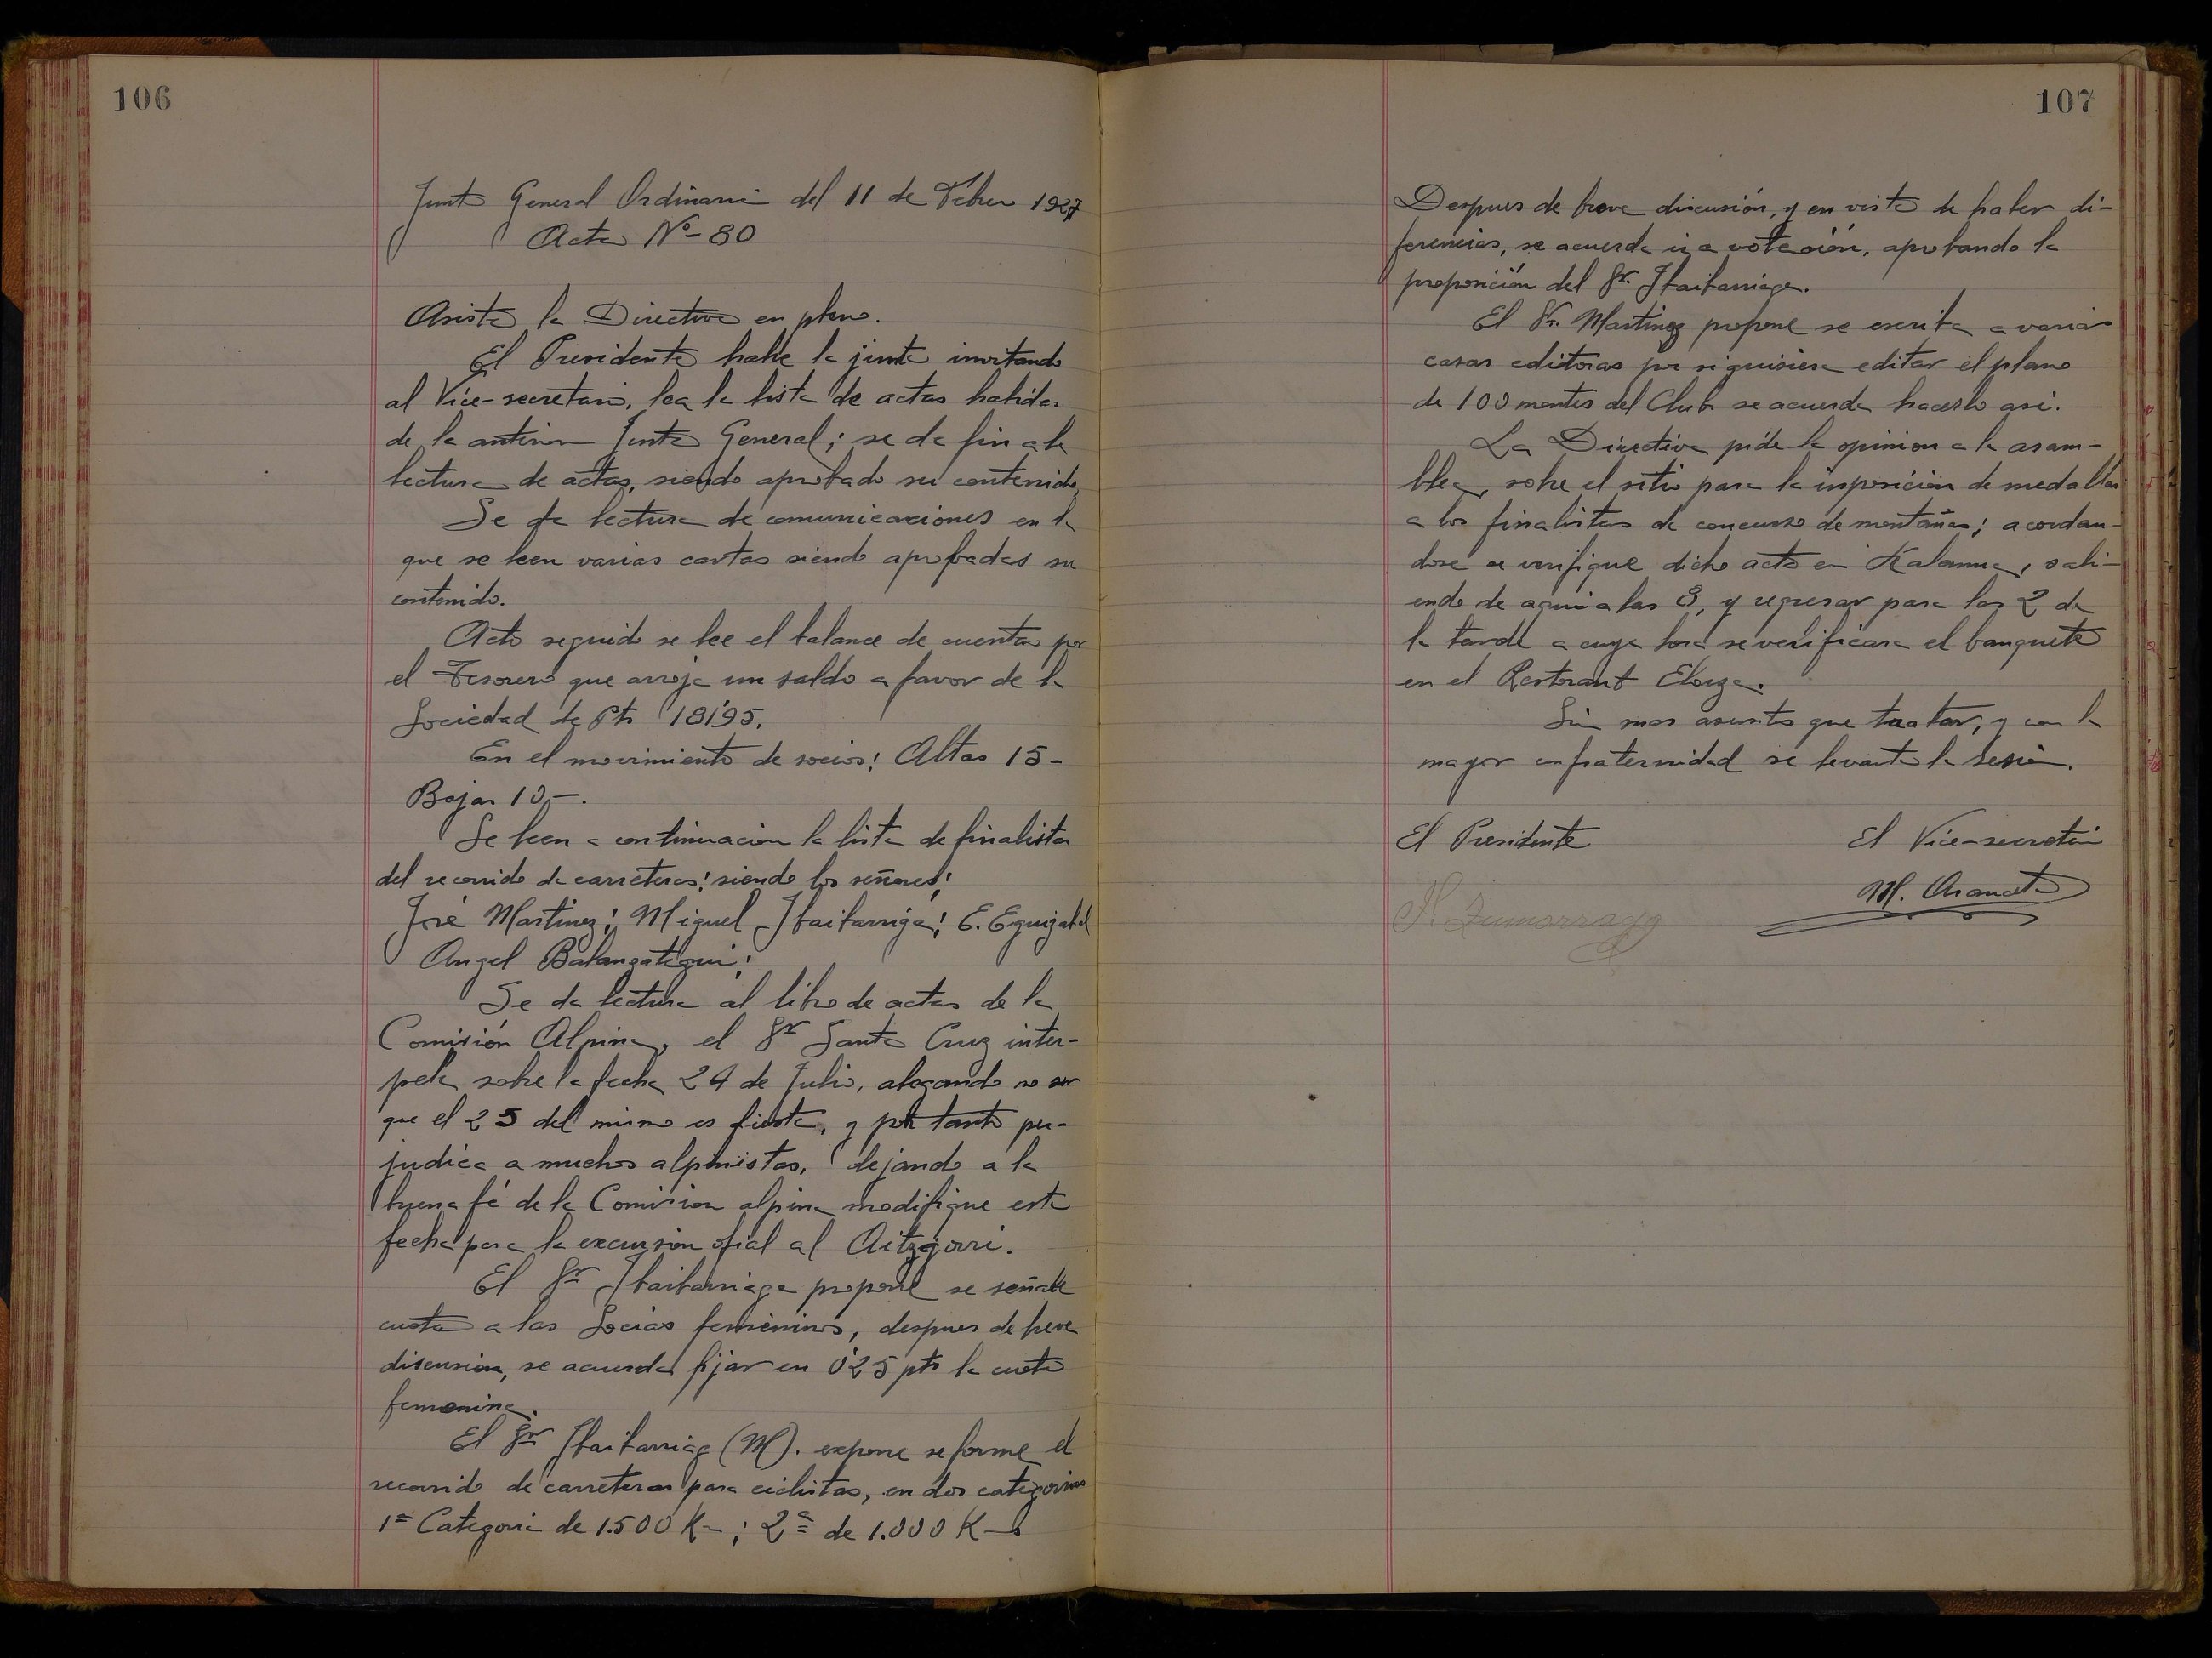 106
Junta General Ordinaria del 11 de Febrero 1927
Acta Nº- 80
Asiste la Directiva en pleno.
El Presidente habre la junta invitando
al Vice-secretario, lea la lista de actas habidas
de la anterior Junta General; se da fin a la
lectura de actas, siendo aprobado su contenido,
Se da lectura de comunicaciones en la
que se leen varias cartas siendo aprobadas su
contenido.
Acto seguido se lee el balance de cuentas por
el Tesorero que arroja un saldo a favor de la
Sociedad de Pts 181'95.
En el movimiento de socios: Altas 15-
Bajas 10-.
Se leen a continuacion la lista de finalistas
del recorrido de carreteras: siendo los señores:
José Martinez; Miguel Ibaibarriaga; E. Eguizabal
Angel Balanzategui;
Se da lectura al libro de actas de la
Comisión Alpina, el Sr Santa Cruz inter-
pela sobre la fecha 24 de Julio, alegando no
que el 25 del mismo es fiesta, y por tanto per-
judica a muchos alpinistas, dejando a la
buena fé de la Comision alpina modifique esta
fecha para la excursion ofial al Aitzgorri.
El Sr Ibaibarriaga propone se señale
cuota a las Socias femeninos, despues de breve
discusion, se acuerda fijar en 0'25 pts la cuota
femenina.
El Sr Ibaibarriaga (M). expone se forme el
recorrido de carreteras para ciclistas, en dos categorias
1ª Categoria de 1.500 K-; 2ª de 1.000 K-
107
Despues de breve discusión, y en vista de haber di-
ferencias, se acuerda ir a votación, aprobando la
proposición del Sr. Ibaibarriaga.
El Sr. Martinez propone se escriba a varias
casas editoras por si quisiera editar el plano
de 100 montes del Club se acuerda hacerlo asi.
La Directiva pide la opinion a la asam-
blea, sobre el sitio para la inposición de medallas
a los finalistas de concurso de montañas; acordan-
dose se verifique dicho acto en Kalamua, sali-
endo de aqui a las 8, y regresar para las 2 de
la tarde a cuya hora se verificara el banquete
en el Restorant Elorza.
Sin mas asunto que tratar, y con la
mayor confraternidad se levanta la sesión.
El Presidente
El Vice-secretario
M. Aranceta
Zumarraga